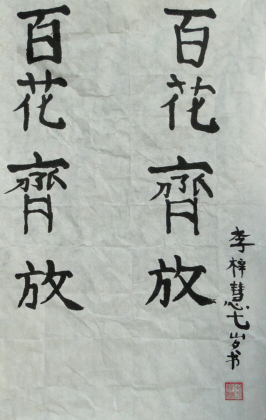 百花齊放
百花齊放
李梓慧七岁书